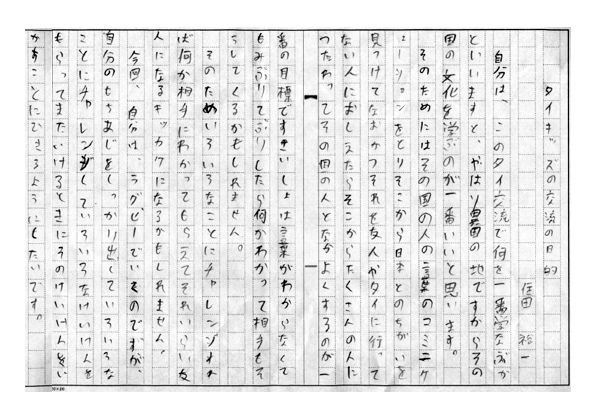 タイキッズの交流の目的
住田 裕一
自分は、このタイ交流で何を一番学なぶか
といいますと、やはり異国の地ですからその
国の文化を学ぶのが一番いいと思います。
そのためにはその国の人の言葉のコミニケ
ーションをとりそこから日本とのちがいを
見つけてなおかつそれを友人やタイに行って
ない人におしえたらそこからたくさんの人に
つたわってその国の人となかよくするのが一
番の目標ですさいしょは言葉がわからなくて
もみぶりてぶりしたら何かわかって相手もそ
うしてくるかもしれません。
そのためいろいろなことにチャレンジすれ
ば何か相手にわかってもらえてそれいらい友
人になるキッカケになるかもしれません。
今回、自分は、ラグビーでいくのですが、
自分のもちあじをしっかり出していろいろな
ことにチャレンジしていろいろなけいけんを
もらってまたいけるときにそのけいけんをい
かすことにできるようにもしたいです。
10×20